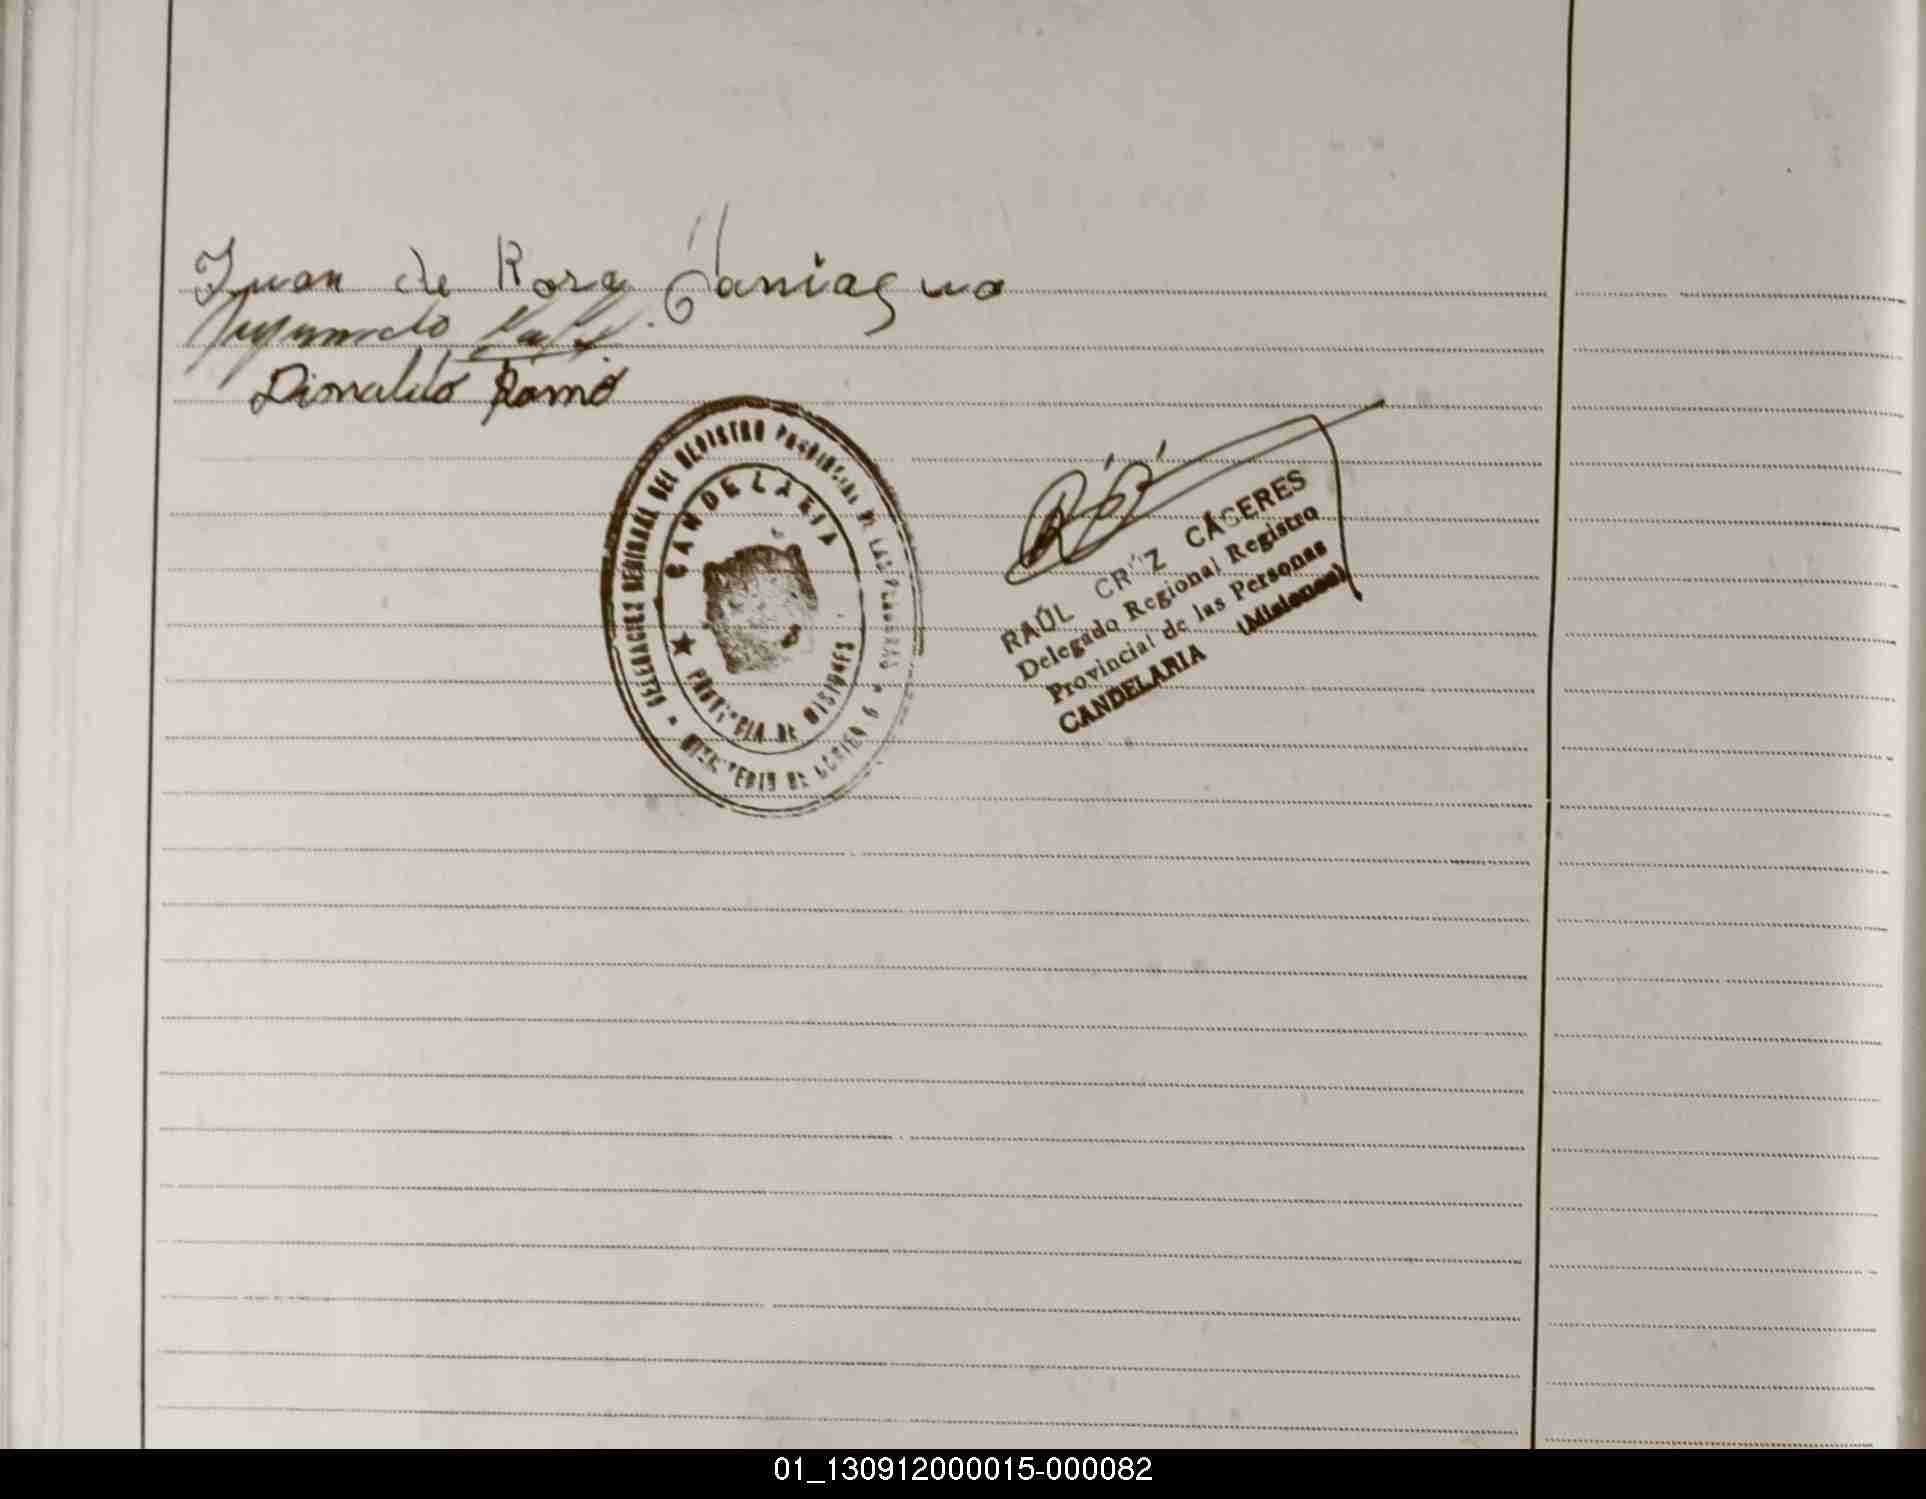 Juan de Rosa Paniagua
Dionaldo Ramo
DELEGACIEZ REGIONAL DEL REGISTRO PROVINCIAL DE LAS PERSONAS
CANDELARIA
PROVINCIA DE MISIONES
MINISTERIO DE
RAÚL CRUZ CÁCERES
Delegado Regional Registro
Provincial de las Personas
CANDELARIA (Misiones)
01_130912000015-000082